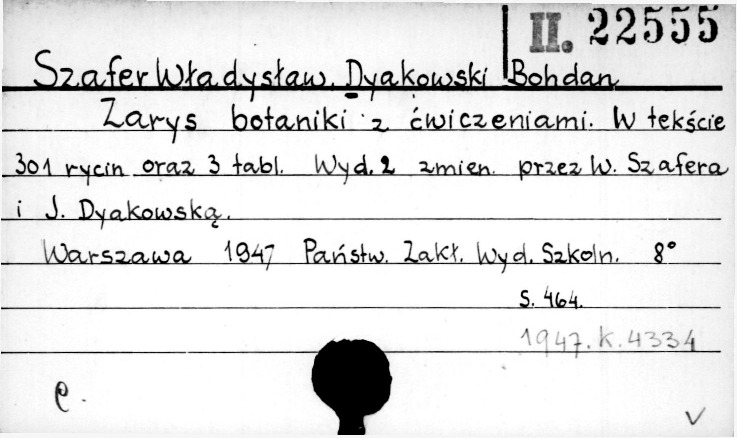 II. 22555
Szafer Władysław, Dyakowski Bohdan
Zarys botaniki z ćwiczeniami. W tekście
301 rycin oraz 3 tabl. Wyd. 2 zmien. przez W. Szafera
i J. Dyakowską.
Warszawa 1947 Państw. Zakł. Wyd. Szkoln. 8°
s. 464.
1947.K.4334
e.
v